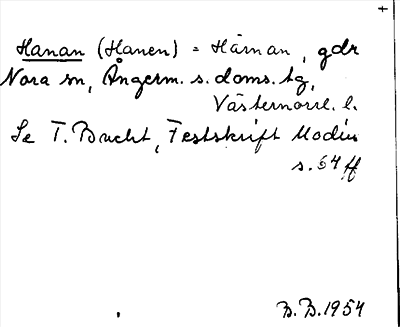 Hanan (Hanen) = Härnan, gdr
Nora sn, Ångerm. s. doms. tg,
Västernorrl. l.
Se T. Bucht, Festskrift Modéus
s. 54 ff
B.B. 1954